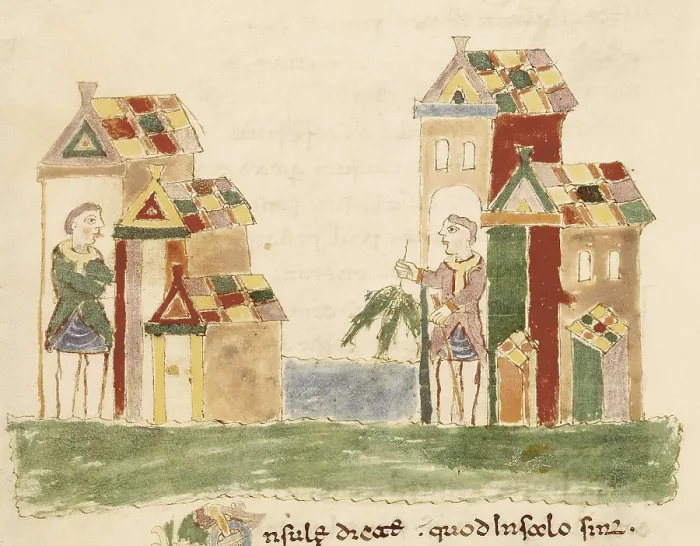 Insulę dictę . quod In salo sint .